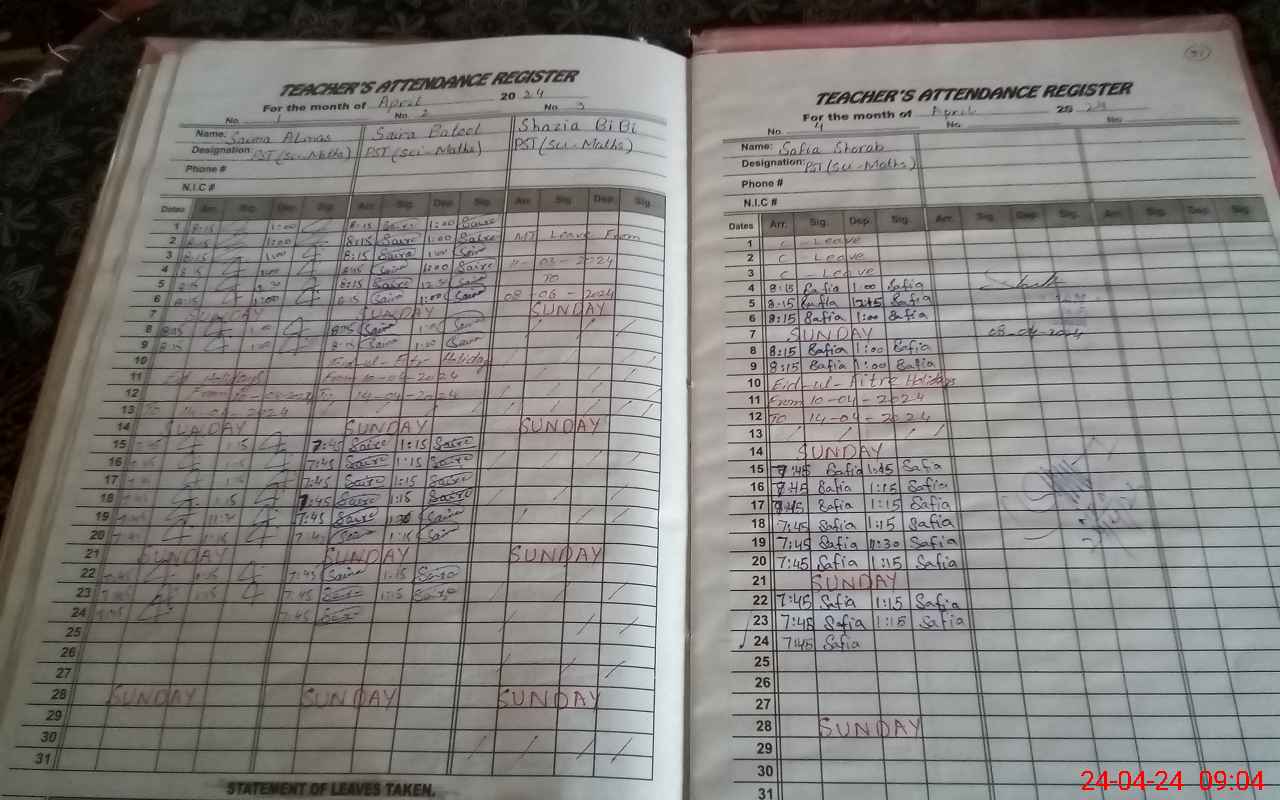 TEACHER'S ATTENDANCE REGISTER
For the month of April 2024
No. 1 No. 2 No. 3
Name: Saima Almas Saira Batool Shazia BiBi
Designation: PST (Sci-Maths) PST (Sci-Maths) PST (Sci-Maths)
Phone #
N.I.C #
Dates Arr. Sig. Dep. Sig. Arr. Sig. Dep. Sig. Arr. Sig. Dep. Sig.
1 8:15 1:00 8:15 Saira 1:00 Saira
2 8:15 1:00 8:15 Saira 1:00 Saira Leave From
3 8:15 1:00 8:15 Saira 1:00 Saira 11-03-2024
4 8:15 1:00 8:15 Saira 1:00 Saira TO
5 8:15 8:15 Saira Saira 08-06-2024
6 8:15 1:00 8:15 Saira 1:00 Saira
7 SUNDAY SUNDAY SUNDAY
8 8:15 1:00 8:15 Saira Saira
9 8:15 1:00 8:15 Saira Saira
10 Eid-ul-Fitr Holiday
11 Eid Holidays From 10-04-2024
12 From 10-04-2024 To 14-04-2024
13 TO 14-04-2024
14 SUNDAY SUNDAY SUNDAY
15 7:45 1:15 7:45 Saira 1:15 Saira
16 7:45 1:15 7:45 Saira 1:15 Saira
17 7:45 Saira 1:15 Saira
18 7:45 1:15 7:45 Saira 1:15 Saira
19 7:45 7:45 Saira Saira
20 7:45 1:15 7:45 Saira 1:15 Saira
21 SUNDAY SUNDAY SUNDAY
22 7:45 1:15 7:45 Saira 1:15 Saira
23 7:45 1:15 7:45 Saira 1:15 Saira
24 7:45 7:45 Saira
25
26
27
28 SUNDAY SUNDAY SUNDAY
29
30
31
STATEMENT OF LEAVES TAKEN.
31
TEACHER'S ATTENDANCE REGISTER
For the month of April 2024
No. 4 No. No.
Name: Safia Shorab
Designation: PST (Sci-Maths)
Phone #
N.I.C #
Dates Arr. Sig. Dep. Sig. Arr. Sig. Dep. Sig. Arr. Sig. Dep. Sig.
1 C-Leave
2 C-Leave
3 C-Leave
4 8:15 Safia 1:00 Safia
5 8:15 Safia 12:15 Safia
6 8:15 Safia 1:00 Safia
7 SUNDAY 08-04-2024
8 8:15 Safia 1:00 Safia
9 8:15 Safia 1:00 Safia
10 Eid-ul-Fitre Holidays
11 From 10-04-2024
12 TO 14-04-2024
13
14 SUNDAY
15 7:45 Safia 1:15 Safia
16 7:45 Safia 1:15 Safia
17 7:45 Safia 1:15 Safia
18 7:45 Safia 1:15 Safia
19 7:45 Safia 1:30 Safia
20 7:45 Safia 1:15 Safia
21 SUNDAY
22 7:45 Safia 1:15 Safia
23 7:45 Safia 1:15 Safia
24 7:45 Safia
25
26
27
28 SUNDAY
29
30
31
24-04-24 09:04